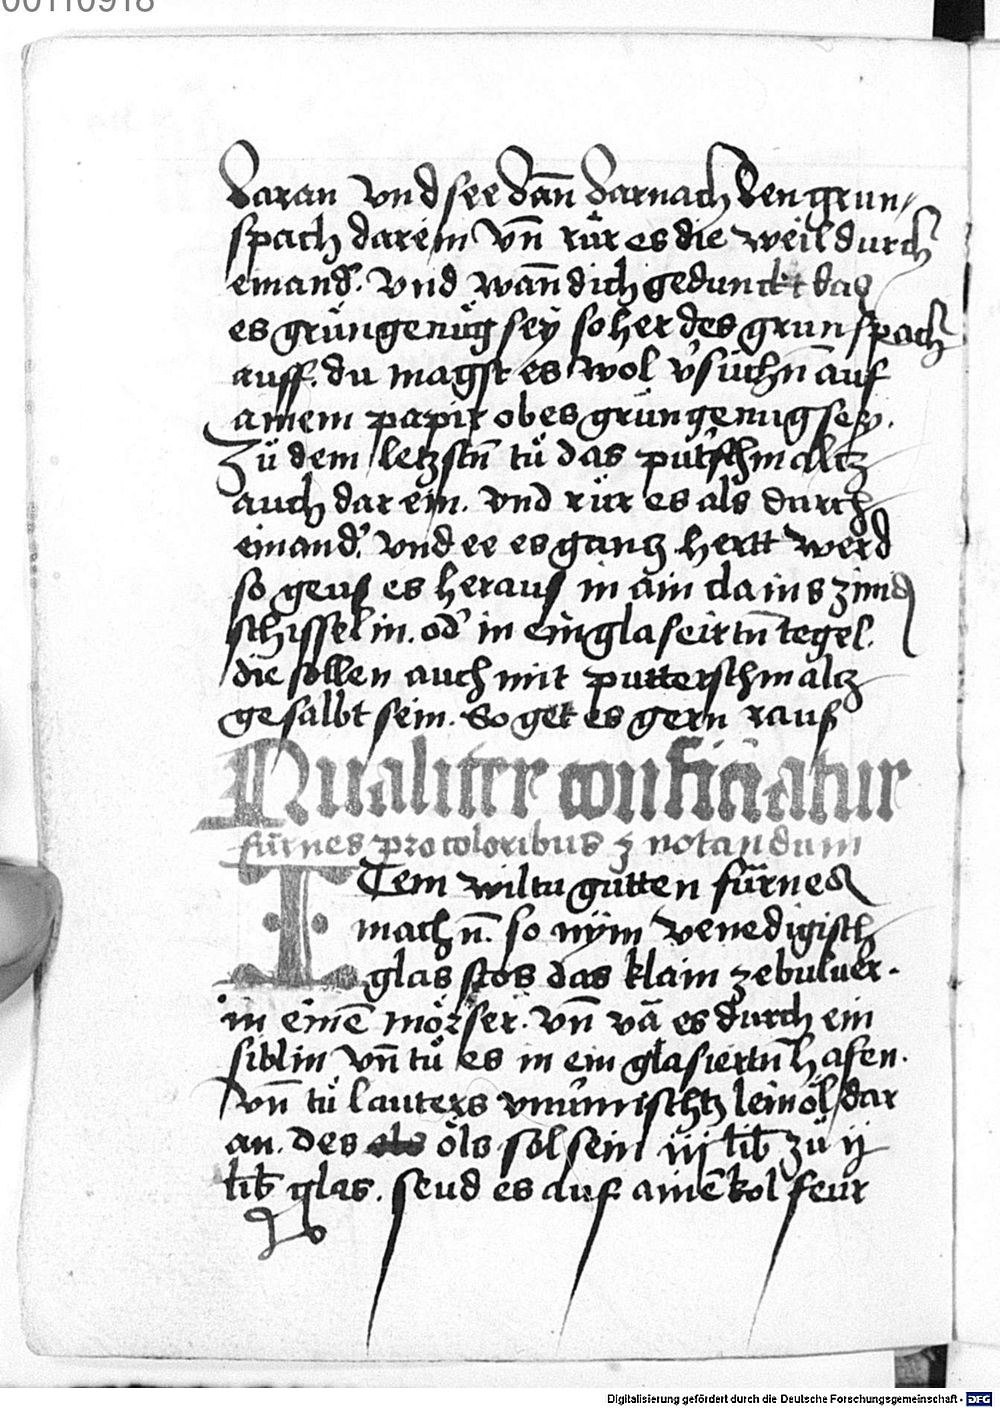 00110918
daran vnd see dan̄ darnach den grun/
spach darein vn̄ rür es die weil durch
einand̾. vnd wan̄ dich gedunckt das
es grün genüg sey so her des grunspach
auff. du magst es wol v̾süchn̄ auf
ainem papir ob es grün genug sey.
Zü dem letzstn̄ tů das put̾schmaltz
auch darein. vnd rür es als durch
einand̾. vnd ee es gantz hertt werd
so geus es heraus in ain clains zind
schisselin. od̾ in ein glaseirtn̄ tegel.
die sollen auch mit putterschmaltz
gesalbt sein. So get es gern raus
Qualiter conficiatur
fürnes pro coloribus ⁊ notandum
ITem wiltu gutten fürnes
machn̄. so nym venedigisch
glas stos das klain ze buluer.
in einē mörser. vn̄ rā es durch ein
siblin vn̄ tů es in ein glasiertn̄ hafen.
vn̄ tů lauters vnu̾mischtz leinöl dar
an. des öls sol sein iij lib zü ij
lib glas. seud es auf ainē kol feür
Digitalisierung gefördert durch die Deutsche Forschungsgemeinschaft - DFG